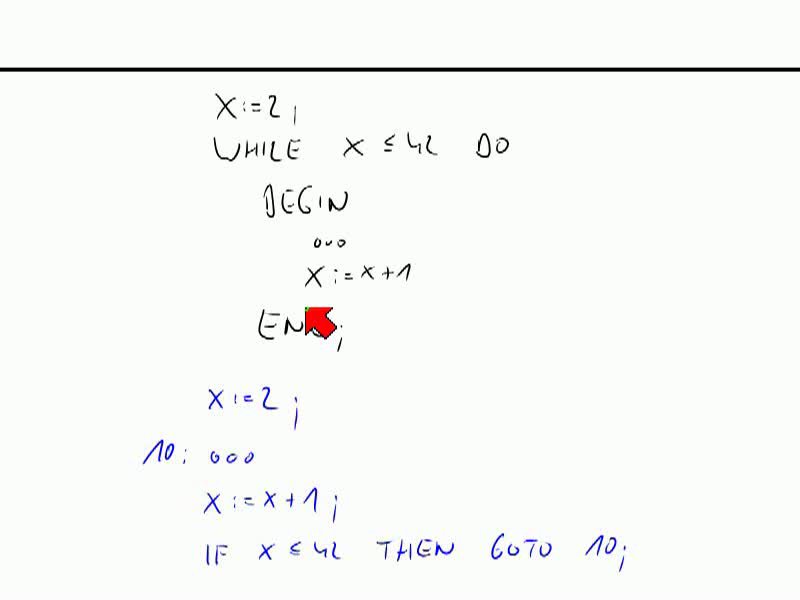 X:=2;
WHILE X ≤ 42 DO
BEGIN
ooo
X:=X+1
X:=2;
10: ooo
X:=X+1;
IF X ≤ 42 THEN GOTO 10;